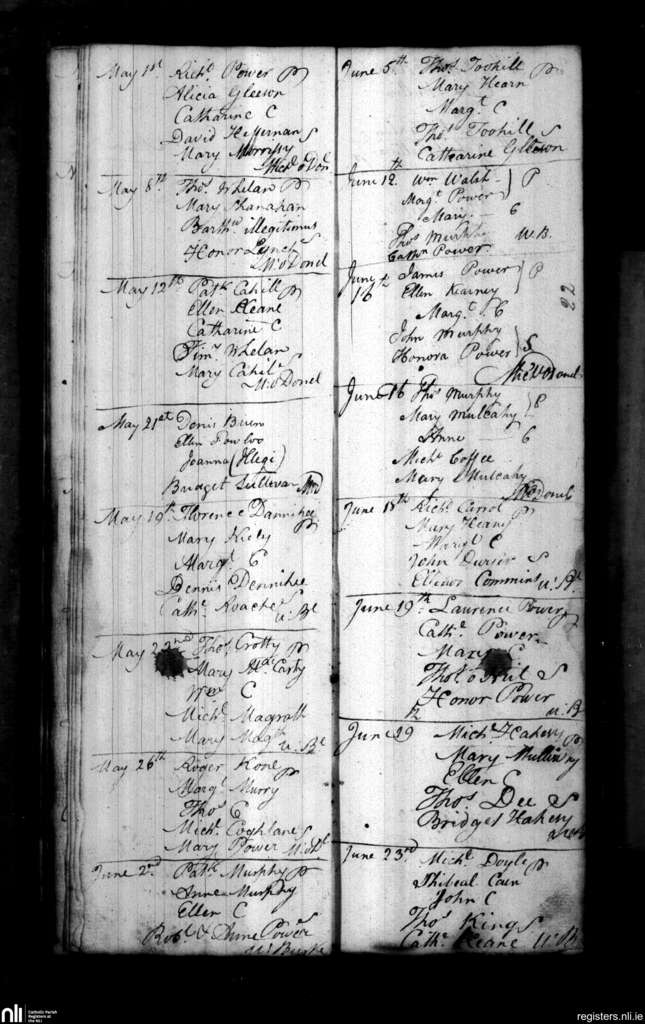 May 1st Richd Power P
Alicia Gleeson
Catharine C
David Heffernan S
Mary Morrissy
Michl O Donel
May 8th Thos Whelan P
Mary Shanahan
Barthw illegitimus
Honor Lynch S
M: O Donel
May 12th Patk Cahill P
Ellen Keane
Catharine C
Timy Whelan
Mary Cahil S
M: O Donel
May 21st Denis
Ellen
Joanna (Illegi)
Bridget Sullivan
May 19th Florence Dannihee P
Mary Kiely
Margt C
Dennis Dennihee
Cathe Roache S
U: Be
May 22nd Thos Crotty P
Mary McCarty
Wm C
Michl Magrath
Mary
U: Be
May 26th Roger Kone P
Margt Murry
Thos C
Michl Coghlane S
Mary Power
June 2nd Patk Murphy P
Anne Murphy
Ellen C
Robt & Anne Power S
U: Burke
June 5th Thos Toohill P
Mary Hearn
Margt C
Thos Toohill S
Catharine Gleeson
June 12th Wm Walsh P
Margt Power
Mary C
Thos Murphy
Cathn Power W. B.
June 16th James Power P
Ellen Kearney
Margt C
John Murphy
Honora Power S
Michl O Donel
22
June 16 Thos Murphy P
Mary Mulcahy
Anne C
Michl Coffee
Mary Mulcahy
June 18th Richd Carrol P
Mary Keane
Margt C
John Dwier S
Elienor Commins
June 19th Laurence Power P
Cathe Power
Mary C
Thos O Neil S
Honor Power
U: B
June 29 Michl Hakery P
Mary
Ellen C
Thos Dee S
Bridget Hakery
June 23rd Michl Doyle P
Cain
John C
Thos King S
Cathe Keane U: B
nli
Catholic Parish
Registers at
the NLI
registers.nli.ie